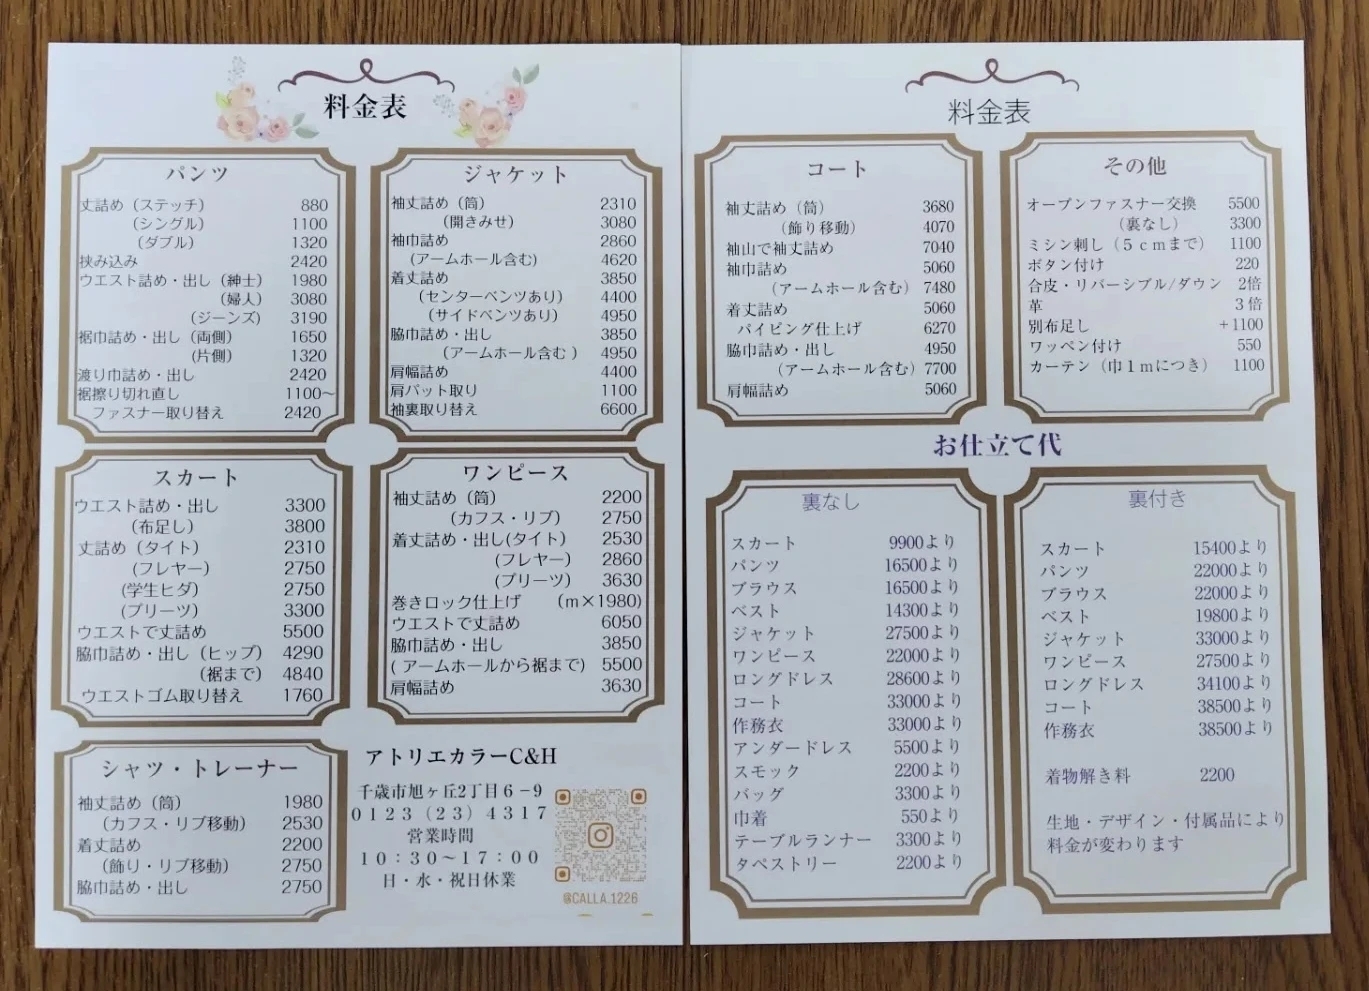 料金表
パンツ
丈詰め（ステッチ） 880
（シングル） 1100
（ダブル） 1320
挟み込み 2420
ウエスト詰め・出し（紳士） 1980
（婦人） 3080
（ジーンズ) 3190
裾巾詰め・出し（両側） 1650
（片側） 1320
渡り巾詰め・出し 2420
裾擦り切れ直し 1100～
ファスナー取り替え 2420
ジャケット
袖丈詰め（筒） 2310
（開きみせ） 3080
袖巾詰め 2860
（アームホール含む) 4620
着丈詰め 3850
（センターベンツあり） 4400
（サイドベンツあり） 4950
脇巾詰め・出し 3850
（アームホール含む ） 4950
肩幅詰め 4400
肩パット取り 1100
袖裏取り替え 6600
スカート
ウエスト詰め・出し 3300
（布足し） 3800
丈詰め（タイト） 2310
（フレヤー） 2750
(学生ヒダ） 2750
（プリーツ） 3300
ウエストで丈詰め 5500
脇巾詰め・出し（ヒップ） 4290
（裾まで） 4840
ウエストゴム取り替え 1760
ワンピース
袖丈詰め（筒） 2200
（カフス・リブ） 2750
着丈詰め・出し(タイト） 2530
（フレヤー） 2860
（プリーツ） 3630
巻きロック仕上げ （ｍ×1980)
ウエストで丈詰め 6050
脇巾詰め・出し 3850
( アームホールから裾まで) 5500
肩幅詰め 3630
シャツ・トレーナー
袖丈詰め（筒） 1980
（カフス・リブ移動） 2530
着丈詰め 2200
（飾り・リブ移動） 2750
脇巾詰め・出し 2750
アトリエカラーC&H
千歳市旭ヶ丘2丁目６−９
０１２３（２３）４３１７
営業時間
１０：３０～１７：００
日・水・祝日休業
@CALLA.1226
料金表
コート
袖丈詰め（筒） 3680
（飾り移動） 4070
袖山で袖丈詰め 7040
袖巾詰め 5060
（アームホール含む） 7480
着丈詰め 5060
パイピング仕上げ 6270
脇巾詰め・出し 4950
（アームホール含む） 7700
肩幅詰め 5060
その他
オープンファスナー交換 5500
（裏なし） 3300
ミシン刺し（５ｃｍまで） 1100
ボタン付け 220
合皮・リバーシブル/ダウン 2倍
革 ３倍
別布足し +1100
ワッペン付け 550
カーテン（巾１ｍにつき） 1100
お仕立て代
裏なし
スカート 9900より
パンツ 16500より
ブラウス 16500より
ベスト 14300より
ジャケット 27500より
ワンピース 22000より
ロングドレス 28600より
コート 33000より
作務衣 33000より
アンダードレス 5500より
スモック 2200より
バッグ 3300より
巾着 550より
テーブルランナー 3300より
タペストリー 2200より
裏付き
スカート 15400より
パンツ 22000より
ブラウス 22000より
ベスト 19800より
ジャケット 33000より
ワンピース 27500より
ロングドレス 34100より
コート 38500より
作務衣 38500より
着物解き料 2200
生地・デザイン・付属品により
料金が変わります